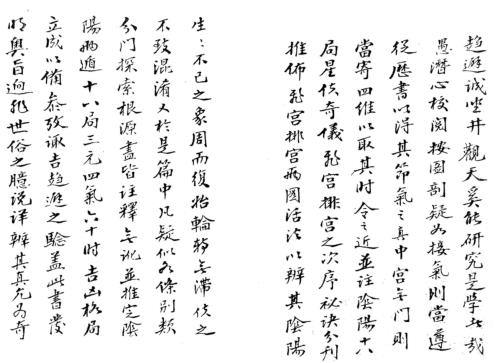 趋避诚坐井觀天奚能研究是學也哉
愚潛心校閱按图剖疑如接氣則當遵
從歷書以得其節氣之真中宫無门則
當寄四维以取其时令之近並註陰陽十八
局星使奇儀飛宫排宫之次序祕诀分列
推佈飛宫排宫两圖活法以辨其陰陽
生〻不已之象周而復始輪转無滞使之
不致混淆又於是篇中凡疑似各條别類
分门探索根源盡皆註釋無訛並推定陰
陽两遁十八局三元四氣六十时吉凶格局
立成以備叅攷諏吉趋避之驗盖此書發
明奥旨迥非世俗之臆说详辨其真允为奇